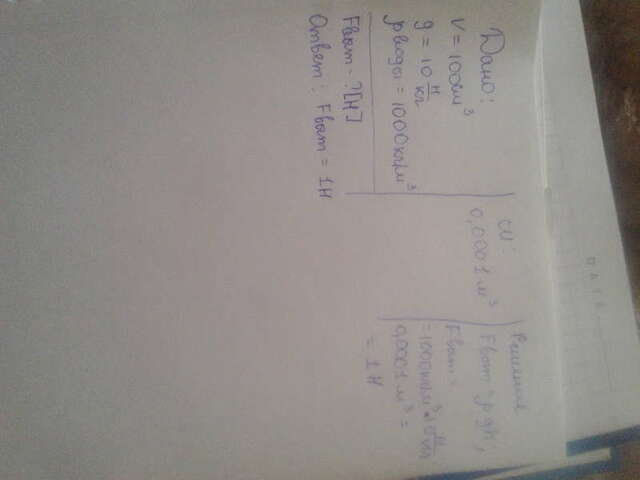 Дано:
V = 100см³
g = 10 Н/кг
ρ воды = 1000кг/м³
Fвыт - ?[Н]
Ответ: Fвыт = 1Н
СИ:
0,0001 м³
Решение
Fвыт = ρgV,
Fвыт =
=1000кг/м³·10Н/кг
0,0001 м³ =
= 1Н